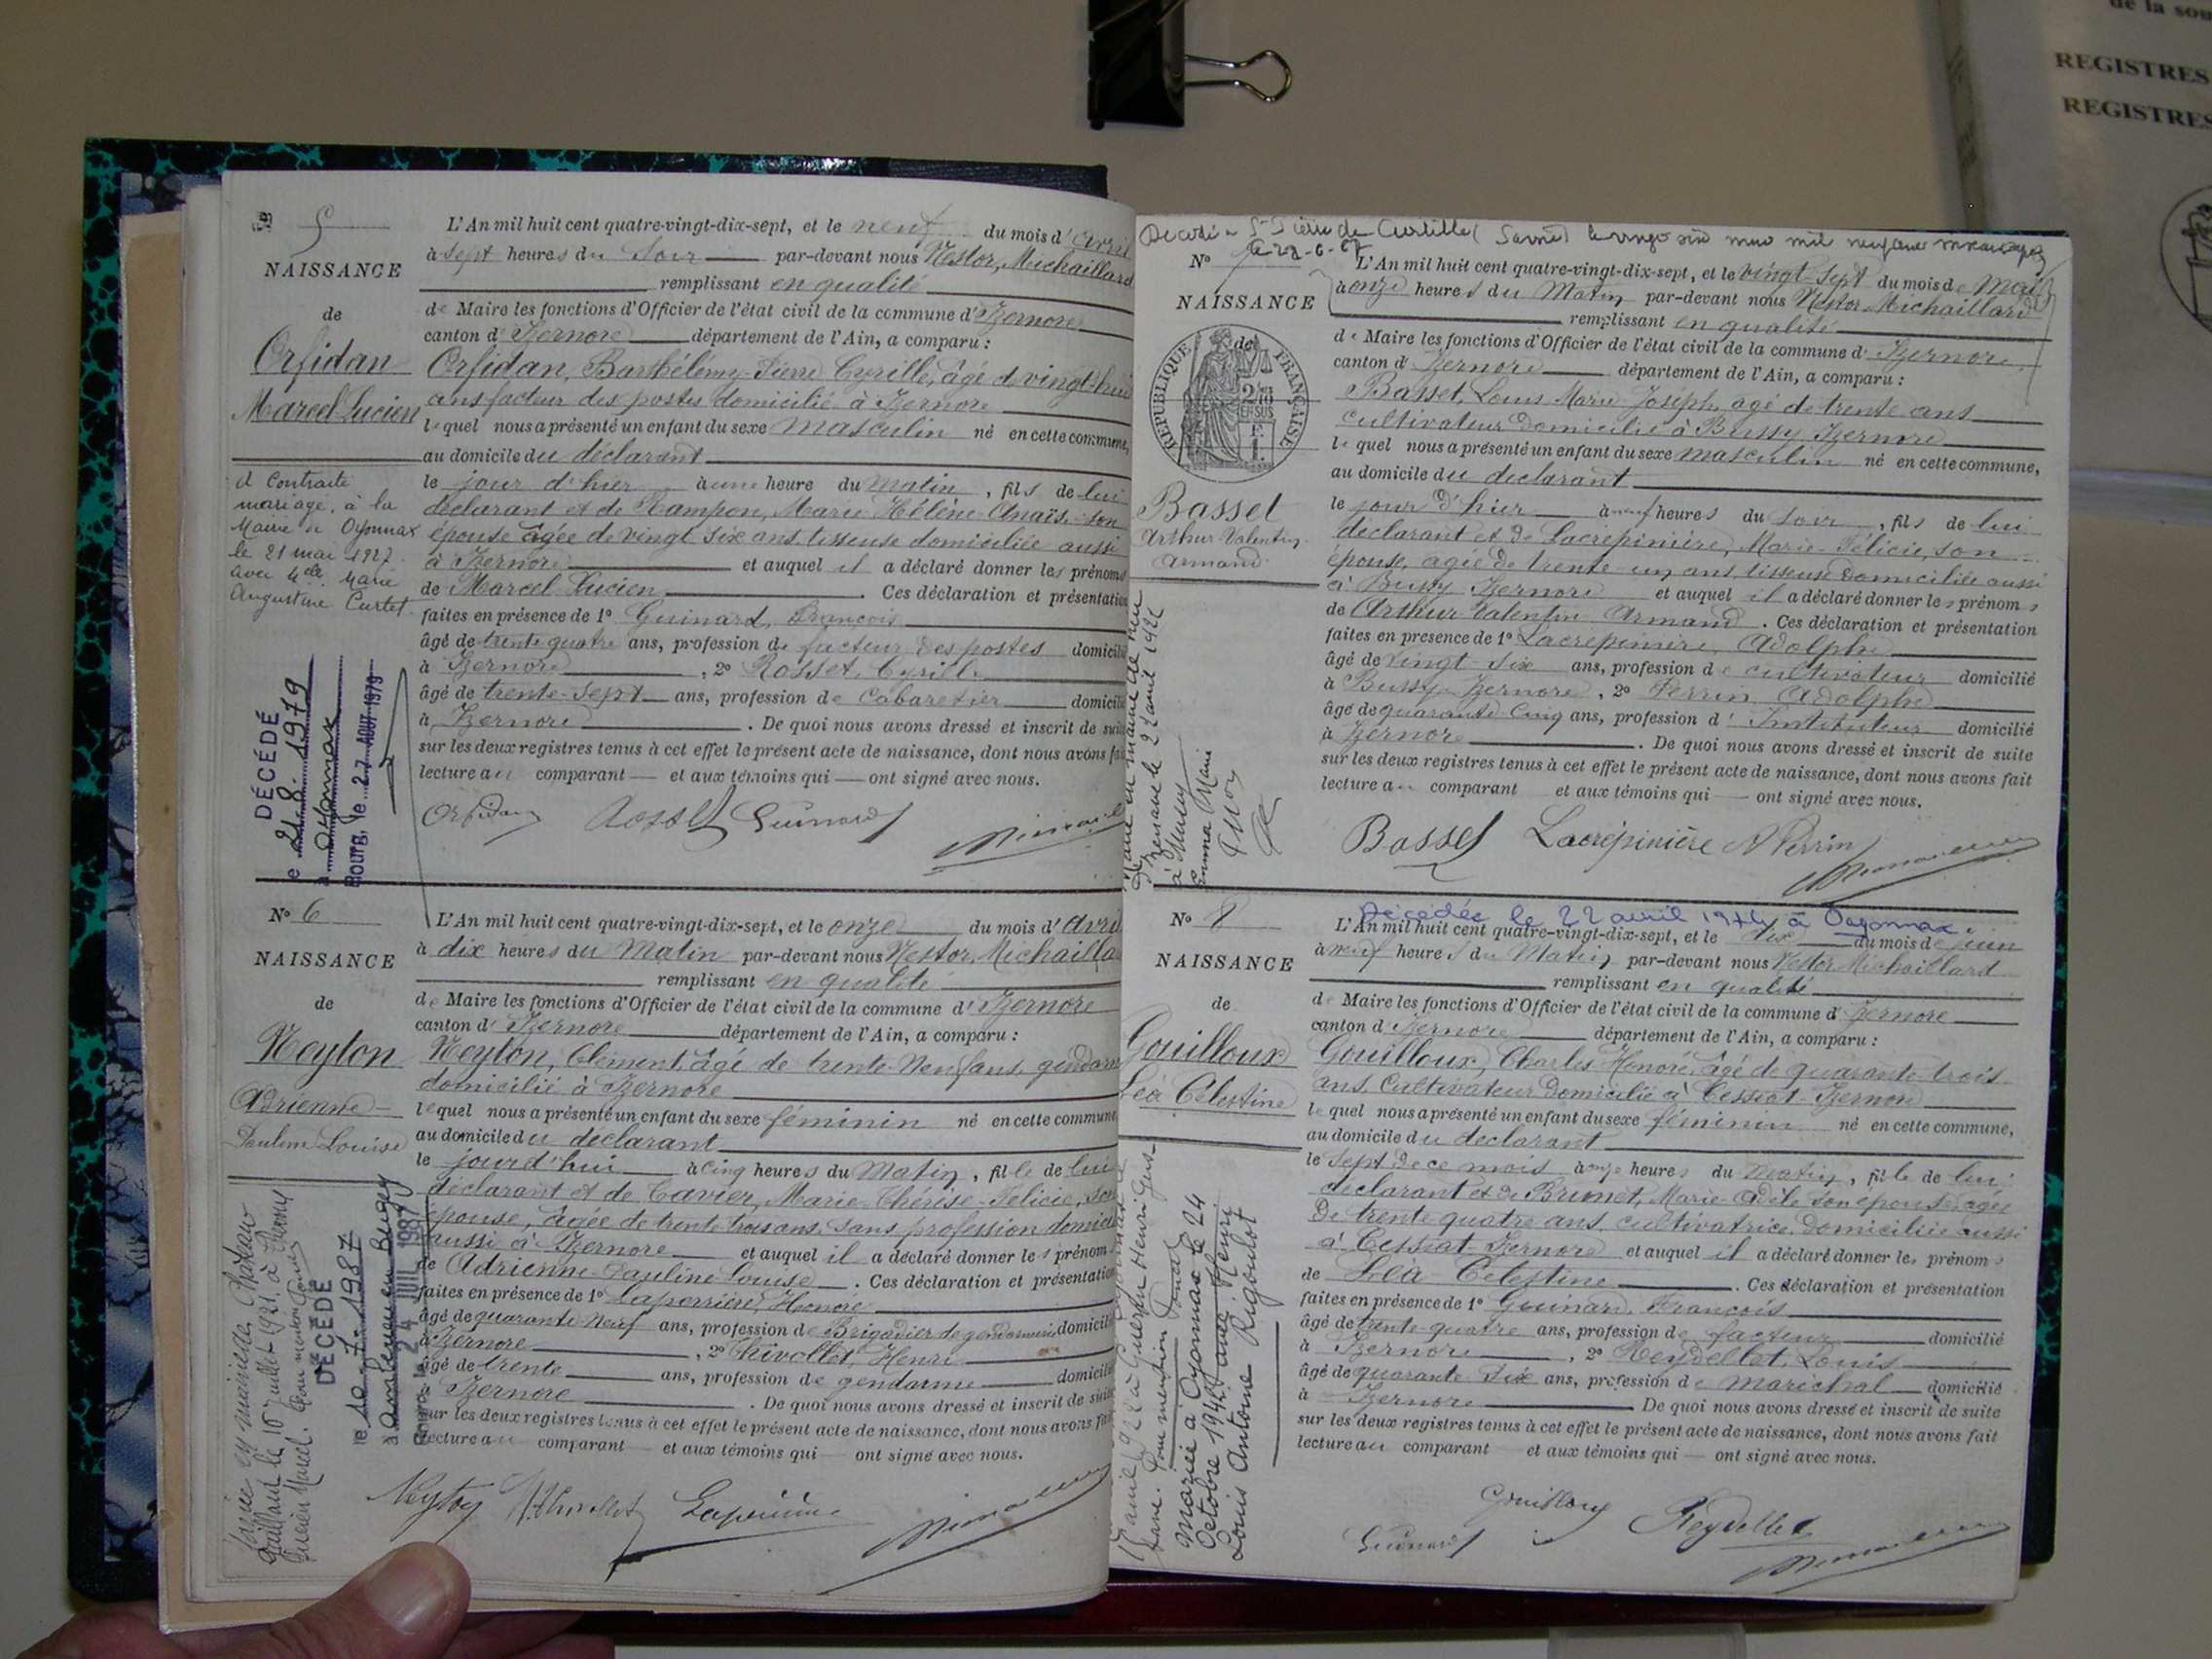 5
NAISSANCE
de
Orfidan
Marcel Lucien
a Contracté
mariage, à la
Mairie de Oyonnax
le 21 mai 1927
avec Melle Marie
Augustine Curtet
DÉCÉDÉ
le 21.8.1979
à Oyonnax
Bourg, le 27 AOUT 1979
L'An mil huit cent quatre-vingt-dix-sept, et le neuf du mois d'avril
à sept heures du Soir par-devant nous Nestor, Michaillard
remplissant en qualité
de Maire les fonctions d'Officier de l'état civil de la commune d'Izernore
canton d'Izernore département de l'Ain, a comparu :
Orfidan, Barthélémy Pierre Cyrille, âgé de vingt-huit
ans facteur des postes domicilié à Izernore
lequel nous a présenté un enfant du sexe masculin né en cette commune,
au domicile du déclarant
le jour d'hier à une heure du matin, fils de lui
déclarant et de Rampon, Marie Hélène Anaïs, son
épouse âgée de vingt six ans tisseuse domiciliée aussi
à Izernore et auquel il a déclaré donner les prénoms
de Marcel Lucien. Ces déclaration et présentation
faites en présence de 1° Guinard, François
âgé de trente quatre ans, profession de facteur des postes domicilié
à Izernore, 2° Rosset, Cyrille
âgé de trente-sept ans, profession de Cabaretier domicilié
à Izernore. De quoi nous avons dressé et inscrit de suite
sur les deux registres tenus à cet effet le présent acte de naissance, dont nous avons fait
lecture au comparant et aux témoins qui ont signé avec nous.
Orfidan Rosset Guinard
N° 6
NAISSANCE
de
Neyton
Adrienne
Pauline Louise
DÉCÉDÉ
le 10.7.1987
à Ambérieu en Bugey
24 JUIL 1987
L'An mil huit cent quatre-vingt-dix-sept, et le onze du mois d'Avril
à dix heures du Matin par-devant nous Nestor, Michailla
remplissant en qualité
de Maire les fonctions d'Officier de l'état civil de la commune d'Izernore
canton d'Izernore département de l'Ain, a comparu :
Neyton, Clément, âgé de trente-neuf ans, gendarme
domicilié à Izernore
lequel nous a présenté un enfant du sexe féminin né en cette commune
au domicile du déclarant
le jour d'hui à cinq heures du Matin, fille de lui
déclarant et de Cavier, Marie-Thérèse-Félicie, son
épouse, âgée de trente trois ans, sans profession domiciliée
aussi à Izernore et auquel il a déclaré donner les prénoms
de Adrienne-Pauline Louise. Ces déclaration et présentation
faites en présence de 1° Laperrière, Honoré
âgé de quarante-neuf ans, profession de Brigadier de gendarmerie domicilié
à Izernore, 2° Chivollet, Henri
âgé de trente ans, profession de gendarme domicilié
Izernore. De quoi nous avons dressé et inscrit de suite
sur les deux registres tenus à cet effet le présent acte de naissance, dont nous avons fait
lecture au comparant et aux témoins qui ont signé avec nous.
Neyton Chivollet Laperrière
N° 7
NAISSANCE
de
RÉPUBLIQUE FRANÇAISE
Basset
Arthur Valentin
Armand
L'An mil huit cent quatre-vingt-dix-sept, et le vingt-sept du mois de Mai
à onze heures du Matin par-devant nous Nestor Michaillard
remplissant en qualité
de Maire les fonctions d'Officier de l'état civil de la commune d'Izernore
canton d'Izernore département de l'Ain, a comparu :
Basset, Louis Marie Joseph, âgé de trente ans
cultivateur domicilié à Bussy Izernore
lequel nous a présenté un enfant du sexe masculin né en cette commune,
au domicile du déclarant
le jour d'hier à neuf heures du soir, fils de lui
déclarant et de Lacrepinière, Marie-Félicie, son
épouse, âgée de trente-un ans, tisseuse domiciliée aussi
à Bussy Izernore et auquel il a déclaré donner les prénoms
de Arthur-Valentin-Armand. Ces déclaration et présentation
faites en présence de 1° Lacrepinière, Adolphe
âgé de vingt-six ans, profession de cultivateur domicilié
à Bussy-Izernore, 2° Perrin Adolphe
âgé de quarante-cinq ans, profession d'Instituteur domicilié
à Izernore. De quoi nous avons dressé et inscrit de suite
sur les deux registres tenus à cet effet le présent acte de naissance, dont nous avons fait
lecture au comparant et aux témoins qui ont signé avec nous.
Basset Lacrépinière A Perrin
N° 8
NAISSANCE
de
Gouilloux
Léa Célestine
Mariée à Oyonnax le 24
Octobre 1942 avec Henri
Louis Antoine Rigoulot
Décédée le 22 avril 1974 à Oyonnax
L'An mil huit cent quatre-vingt-dix-sept, et le dix du mois de juin
à neuf heures du Matin par-devant nous Nestor Michaillard
remplissant en qualité
de Maire les fonctions d'Officier de l'état civil de la commune d'Izernore
canton d'Izernore département de l'Ain, a comparu :
Gouilloux, Charles-Honoré, âgé de quarante-trois
ans, Cultivateur domicilié à Cessiat-Izernore
lequel nous a présenté un enfant du sexe féminin né en cette commune,
au domicile du déclarant
le sept de ce mois à onze heures du matin, fille de lui
déclarant et de Brunet, Marie-Adèle son épouse âgée
de trente quatre ans, cultivatrice, domiciliée aussi
à Cessiat-Izernore et auquel il a déclaré donner les prénoms
de Léa-Célestine. Ces déclaration et présentation
faites en présence de 1° Guinard, François
âgé de trente-quatre ans, profession de facteur domicilié
à Izernore, 2° Reydellet, Louis
âgé de quarante six ans, profession de maréchal domicilié
à Izernore De quoi nous avons dressé et inscrit de suite
sur les deux registres tenus à cet effet le présent acte de naissance, dont nous avons fait
lecture au comparant et aux témoins qui ont signé avec nous.
Gouilloux
Guinard Reydellet
de la sou
REGISTRES
REGISTRES